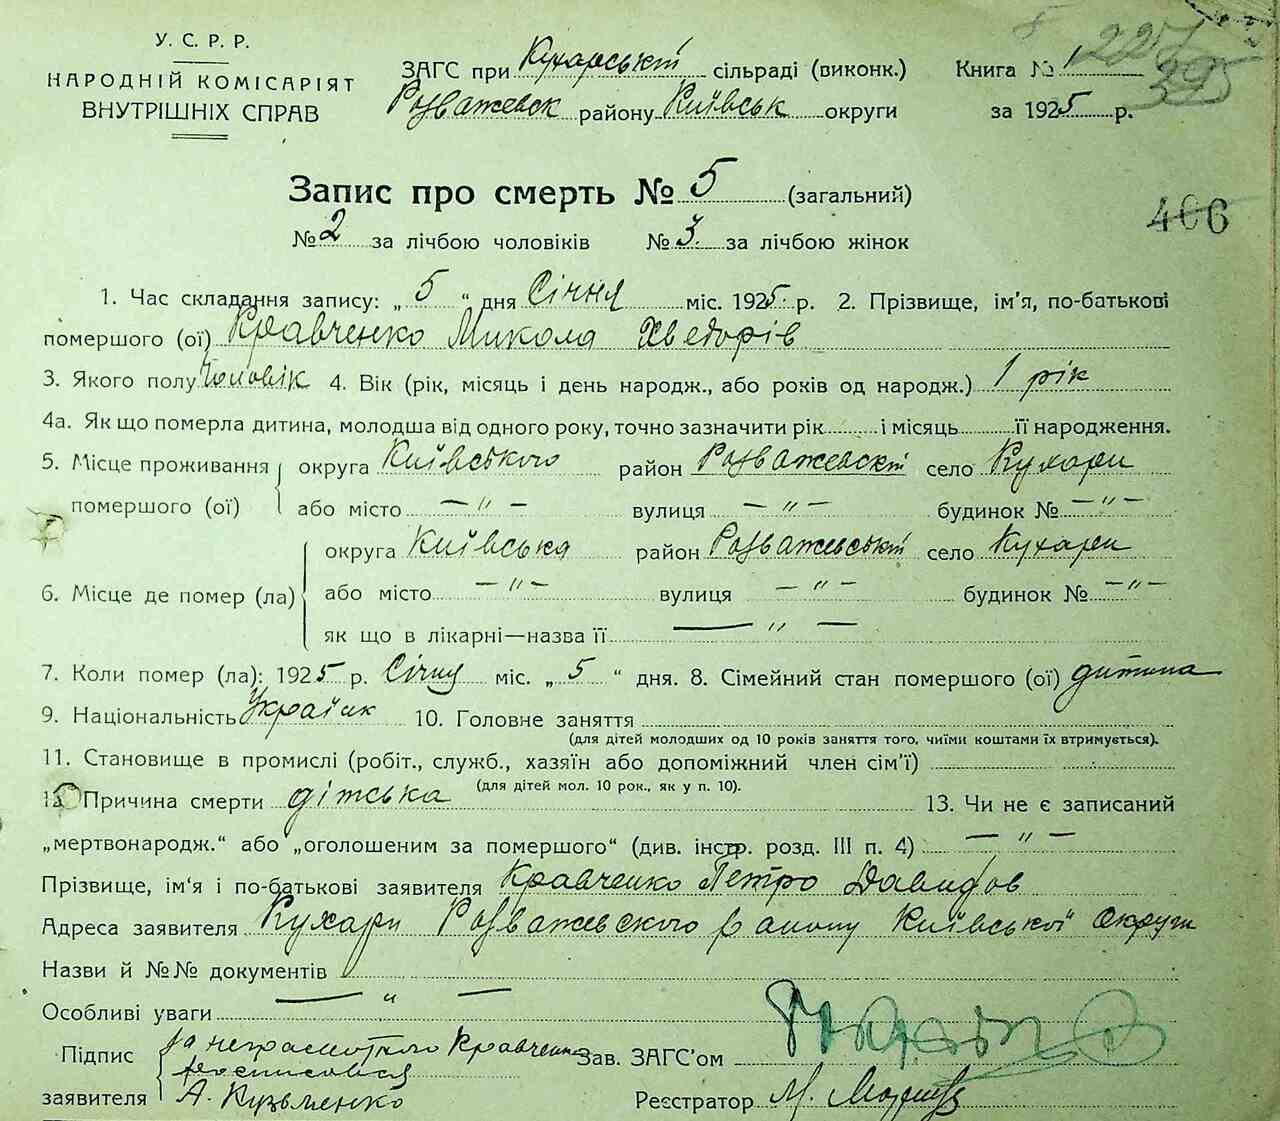 У. С. Р. Р.
НАРОДНІЙ КОМІСАРІЯТ
ВНУТРІШНІХ СПРАВ
ЗАГС при Кухарській сільраді (виконк.)
Розважевск району Київськ округи
Книга № 1
за 1925 р.
227
395
Запис про смерть № 5 (загальний)
406
№ 2 за лічбою чоловіків № 3 за лічбою жінок
1. Час складання запису: „ 5 “ дня Січня міс. 1925 р. 2. Прізвище, ім'я, по-батькові
помершого (ої) Кравченко Микола Хведорів
3. Якого полу Чоловік 4. Вік (рік, місяць і день народж., або років од народж.) 1 рік
4а. Як що померла дитина, молодша від одного року, точно зазначити рік і місяць її народження.
5. Місце проживання помершого (ої) округа Київського район Розважевскі село Кухари
або місто — " — вулиця — " — будинок № — " —
6. Місце де помер (ла) округа Київська район Розважевські село Кухари
або місто — " — вулиця — " — будинок № — " —
як що в лікарні—назва її — " —
7. Коли помер (ла): 1925 р. Січня міс. „ 5 “ дня. 8. Сімейний стан помершого (ої) дитина
9. Національність Українк 10. Головне заняття
(для дітей молодших од 10 років заняття того, чиїми коштами їх втримується).
11. Становище в промислі (робіт., служб., хазяїн або допоміжний член сім'ї)
(для дітей мол. 10 рок., як у п. 10).
12. Причина смерти дітська 13. Чи не є записаний
„мертвонародж.“ або „оголошеним за помершого“ (див. інстр. розд. III п. 4) — " —
Прізвище, ім'я і по-батькові заявителя Кравченко Петро Давидов
Адреса заявителя Кухари Розважевского району Київської округи
Назви й №№ документів
— " —
Особливі уваги
Підпис заявителя За неграмотного Кравченка
росписовся
А. Кузьменко
Зав. ЗАГС'ом
Реєстратор М.